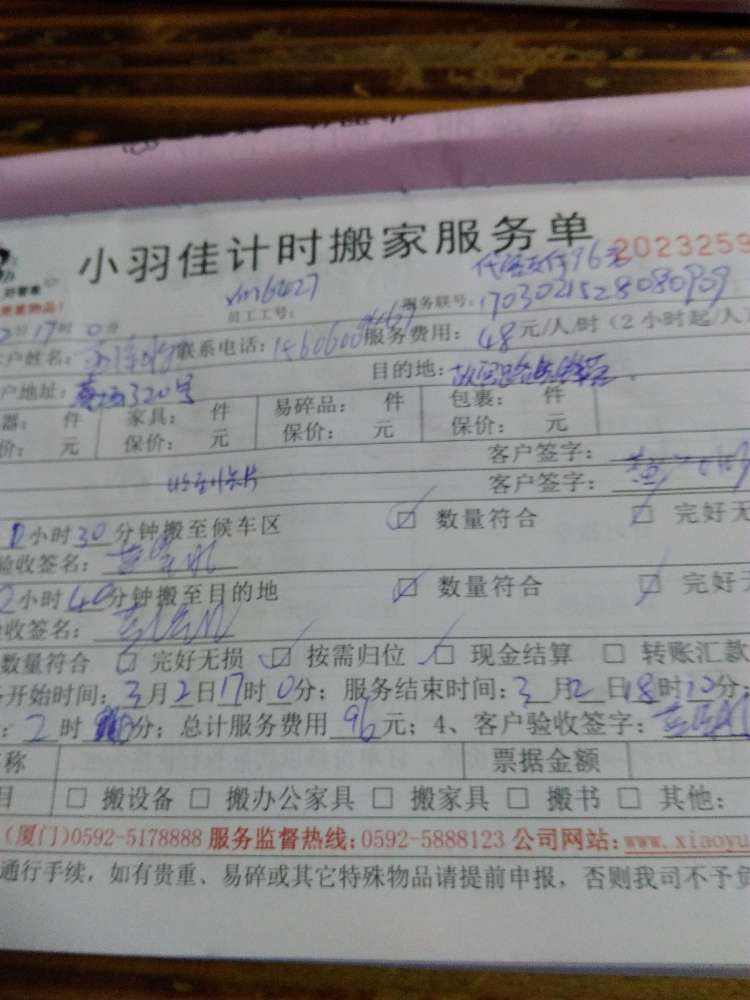 小羽佳计时搬家服务单 2023259
代语支付96元
xm6427
员工工号: 服务联号: 1703021528080909
贵重物品!
2日17时0分
客户姓名: 联系电话: 服务费用: 48元/人/时(2小时起/人
户地址: 320号 目的地:
器: 件 家具: 件 易碎品: 件 包裹: 件
价: 元 保价: 元 保价: 元 保价: 元
客户签字:
客户签字:
小时30分钟搬至候车区 数量符合 完好无
验收签名:
2小时40分钟搬至目的地 数量符合 完好无
收签名:
数量符合 完好无损 按需归位 现金结算 转账汇款
务开始时间: 3月2日17时0分; 服务结束时间: 3月2日18时10分;
: 2时 分; 总计服务费用96元; 4、客户验收签字:
称 票据金额
目 □ 搬设备 □ 搬办公家具 □ 搬家具 □ 搬书 □ 其他:
(厦门)0592-5178888 服务监督热线:0592-5888123 公司网站:www.xiaoyu
通行手续,如有贵重、易碎或其它特殊物品请提前申报,否则我司不予负